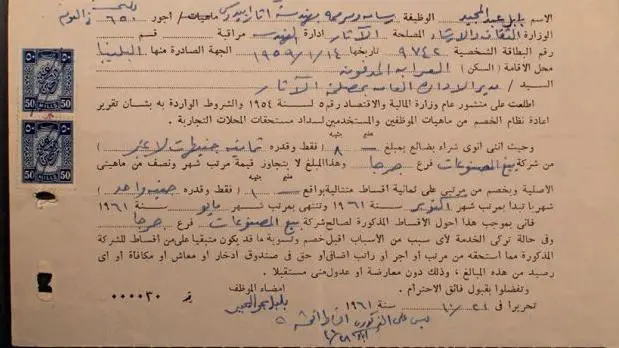 الاسم بابل عبد المجيد الوظيفة رسام ومرمم بهندسة آثار ماهيات / أجور ٦٥٠
الوزارة الثقافة والارشاد المصلحة الآثار ادارة الهندسة مراقبة قسم
رقم البطاقة الشخصية ٩٧٤٢ تاريخها ١٩٥٩/١/١٤ الجهة الصادرة منها البلينا
محل الاقامة (السكن) العرابة المدفونة
السيد / مدير الادارة العامة بمصلحة الآثار
اطلعت على منشور عام وزارة المالية والاقتصاد رقم ٥ لسنة ١٩٥٤ والشروط الواردة به بشأن تقرير
اعادة نظام الخصم من ماهيات الموظفين والمستخدمين لسداد مستحقات المحلات التجارية .
وحيث اننى انوى شراء بضائع بمبلغ ٨ جنيه ( فقط وقدره ثمانية جنيهات لاغير )
من شركة بيع المصنوعات فرع جرجا وهذا المبلغ لا يتجاوز قيمة مرتب شهر ونصف من ماهيتى
الأصلية ويخصم من مرتبى على ثمانية أقساط متتالية بواقع ١ جنيه ( فقط وقدره جنيه واحد )
شهريا تبدأ بمرتب شهر اكتوبر سنة ١٩٦١ وتنتهى بمرتب شهر مايو سنة ١٩٦١
فانى بموجب هذا احول الأقساط المذكورة لصالح شركة بيع المصنوعات فرع جرجا
وفى حالة تركى الخدمة لأى سبب من الأسباب اقبل خصم وتسوية ما قد يكون متبقيا على من أقساط للشركة
المذكورة مما استحقه من مرتب أو أجر أو راتب اضافى أو حق فى صندوق ادخار أو معاش أو مكافأة أو أى
رصيد من هذه المبالغ ، وذلك دون معارضة أو عدول منى مستقبلا .
وتفضلوا بقبول فائق الاحترام .
امضاء الموظف
تحريرا فى سنة ١٩٦١
بابل عبد المجيد
٠٠٠٠٣٠
٥٠
٥٠
50 MILLS 50
٥٠
٥٠
50 MILLS 50